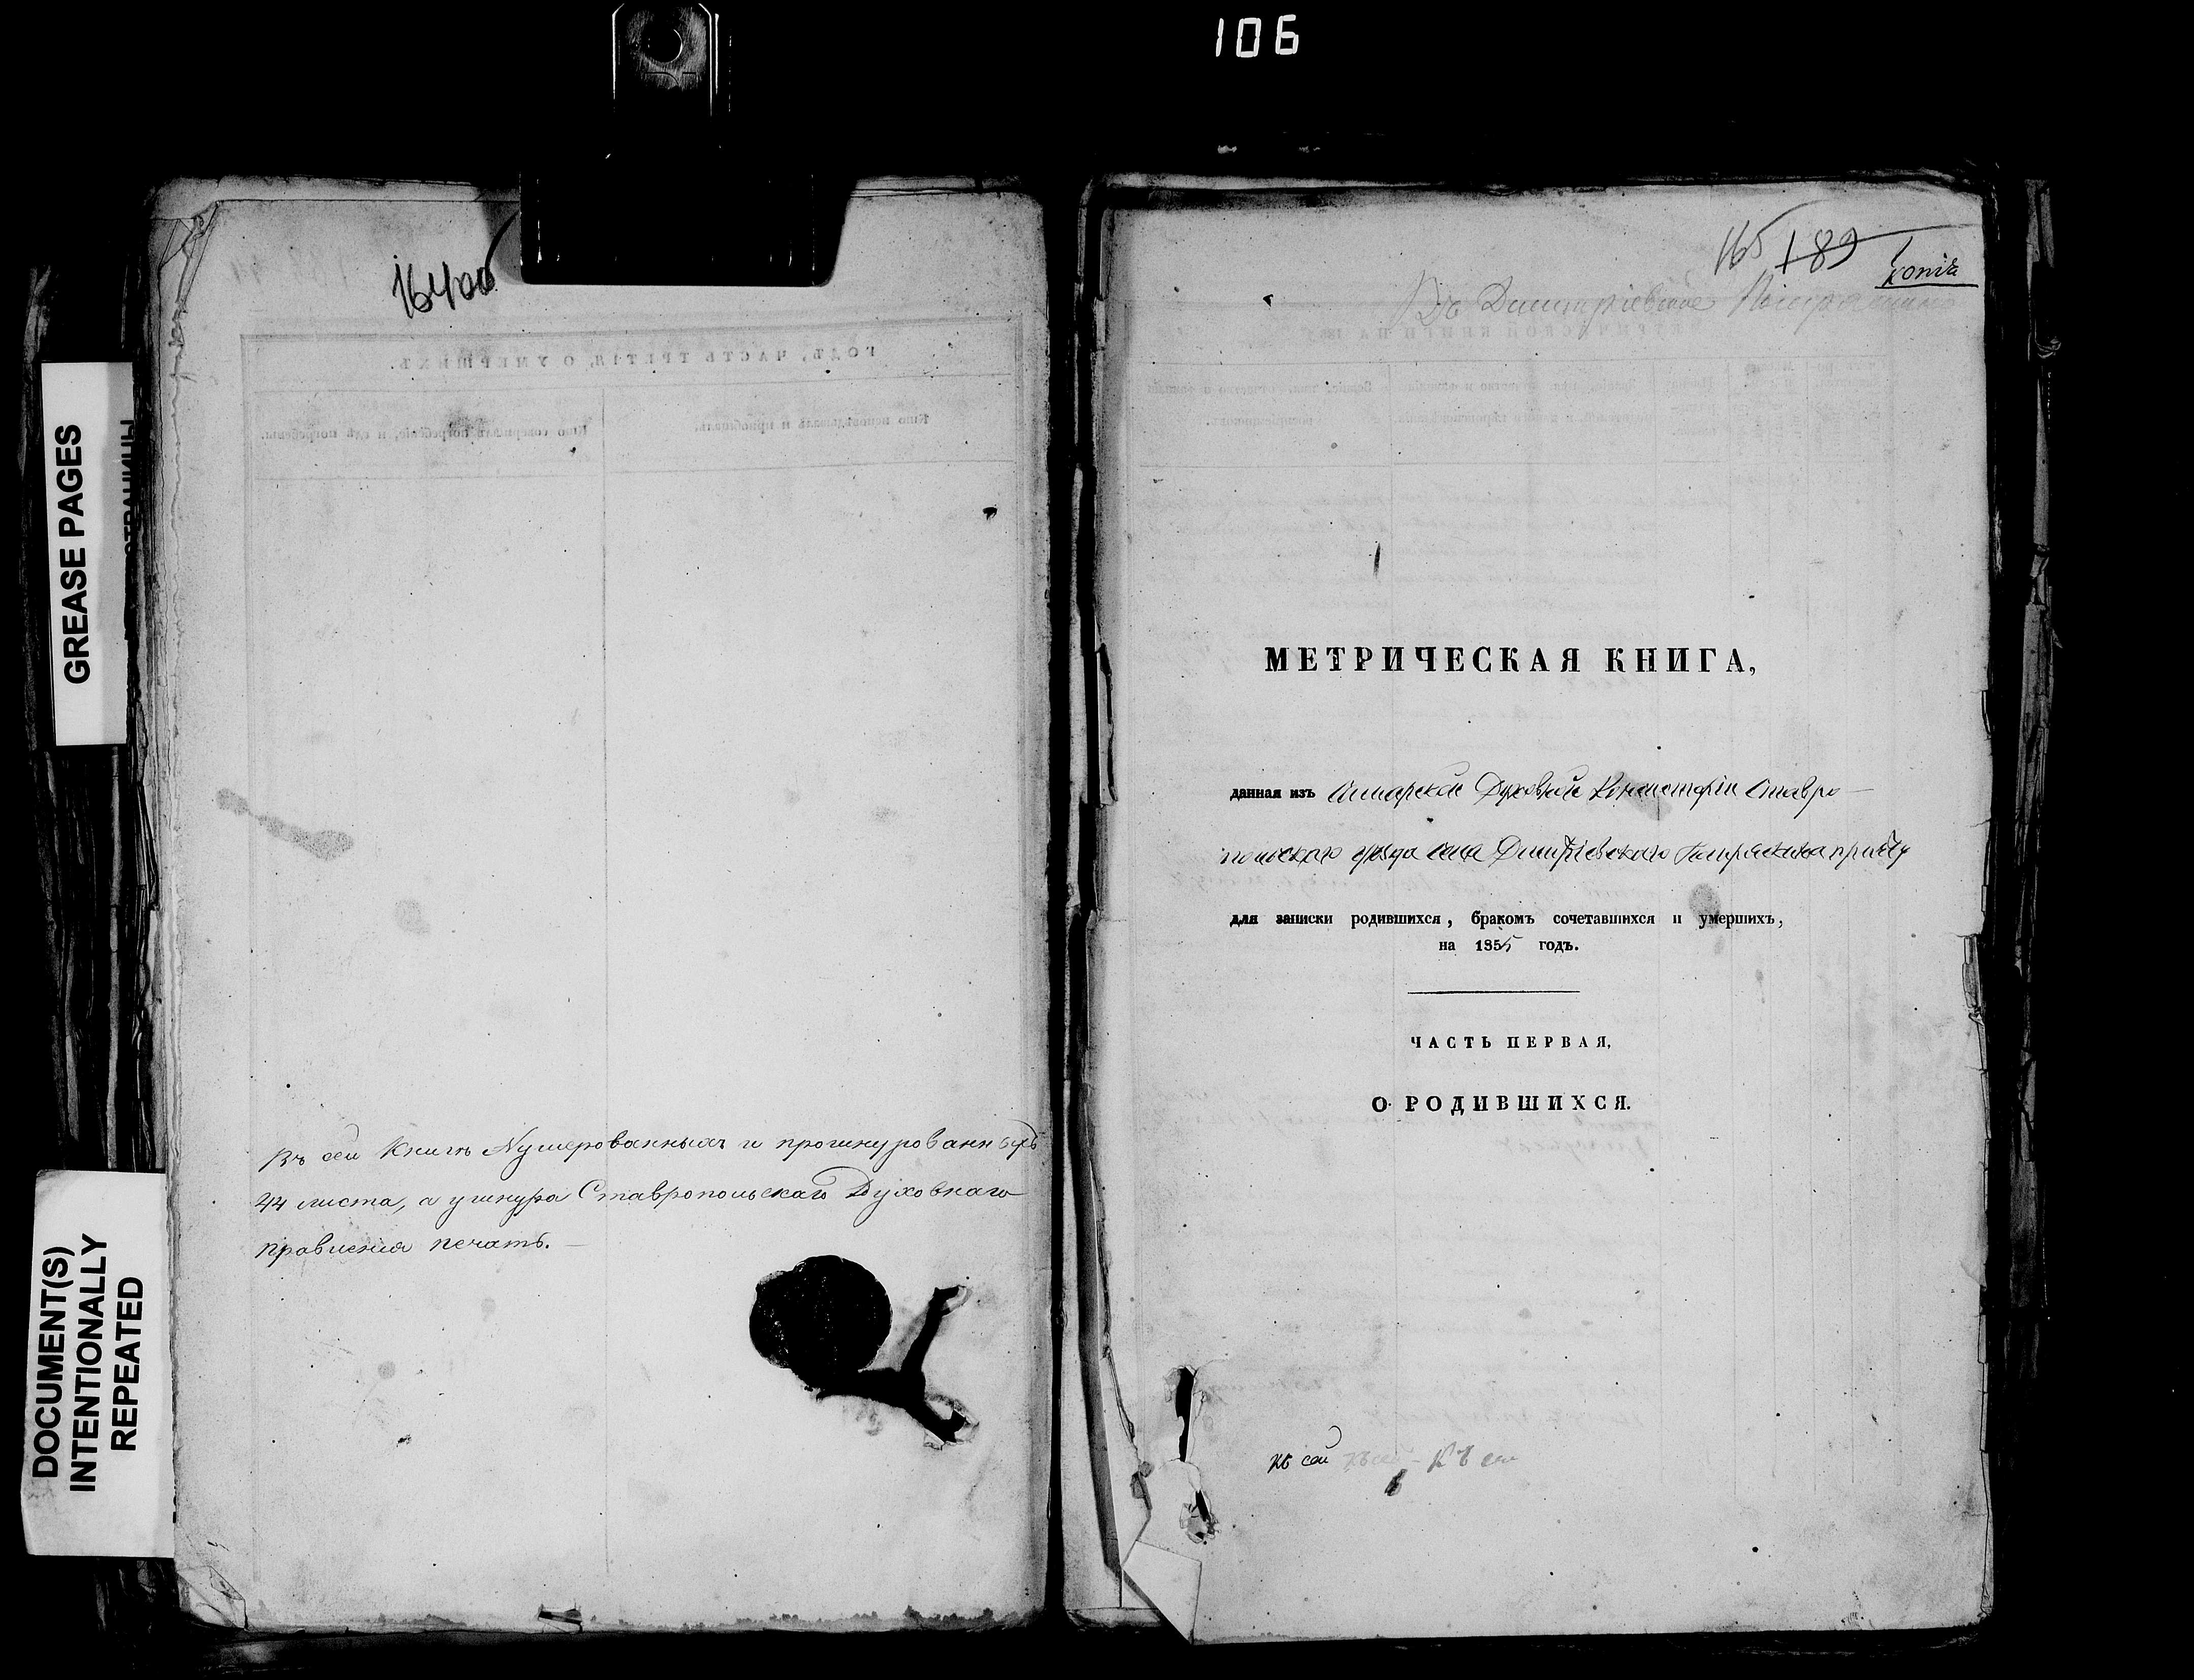 106
GREASE PAGES
DOCUMENT(S)
INTENTIONALLY
REPEATED
164об
Въ сей Книгѣ Нумерованныхъ и прошнурованныхъ
44 листа, а у шнура Ставропольскаго Духовнаго
правленія печать.
165 189 копія
Въ Дмитріевское
МЕТРИЧЕСКАЯ КНИГА,
данная изъ Самарской Духовной Консисторіи Ставро-
польскаго уѣзда села Димитріевскаго причту
для записки родившихся, бракомъ сочетавшихся и умершихъ,
на 1855 годъ.
ЧАСТЬ ПЕРВАЯ,
О РОДИВШИХСЯ.
къ сей къ сей - Къ сей